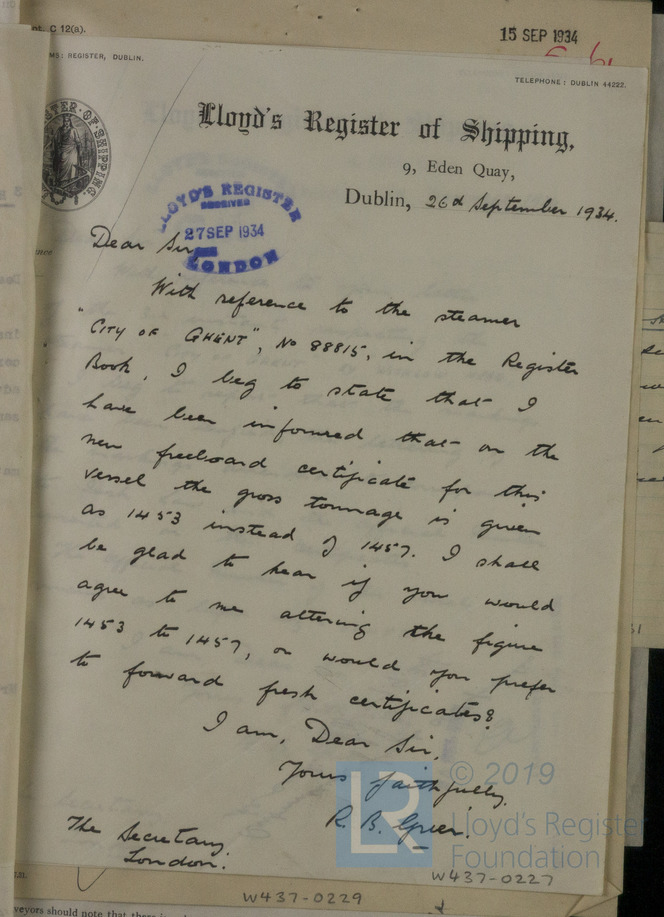 C 12(a).
15 SEP 1934
REGISTER, DUBLIN.
TELEPHONE: DUBLIN 44222.
Lloyd's Register of Shipping,
9, Eden Quay,
Dublin, 26th September 1934.
LLOYD'S REGISTER
RECEIVED
27 SEP 1934
LONDON
Dear Sir,
With reference to the steamer
"CITY OF GHENT", No 88815, in the Register
Book, I beg to state that I
have been informed that on the
new freeboard certificate for this
vessel the gross tonnage is given
as 1453 instead of 1457. I shall
be glad to hear if you would
agree to me altering the figure
1453 to 1457, or would you prefer
to forward fresh certificates?
I am, Dear Sir,
Yours faithfully,
R. B.
The Secretary,
London.
LR
© 2019
Lloyd's Register
Foundation
W437-0227
W437-0229
veyors should note that